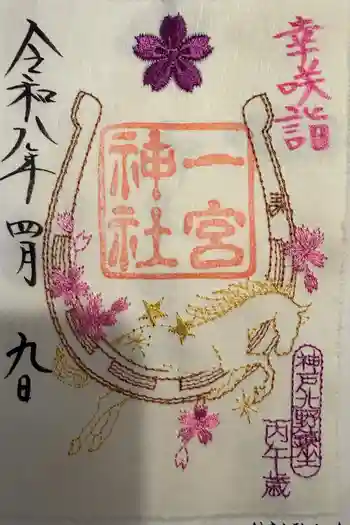 幸咲詣
一宮
神社
令和八年 四月 九日
神戸北野鎮坐
丙午歳